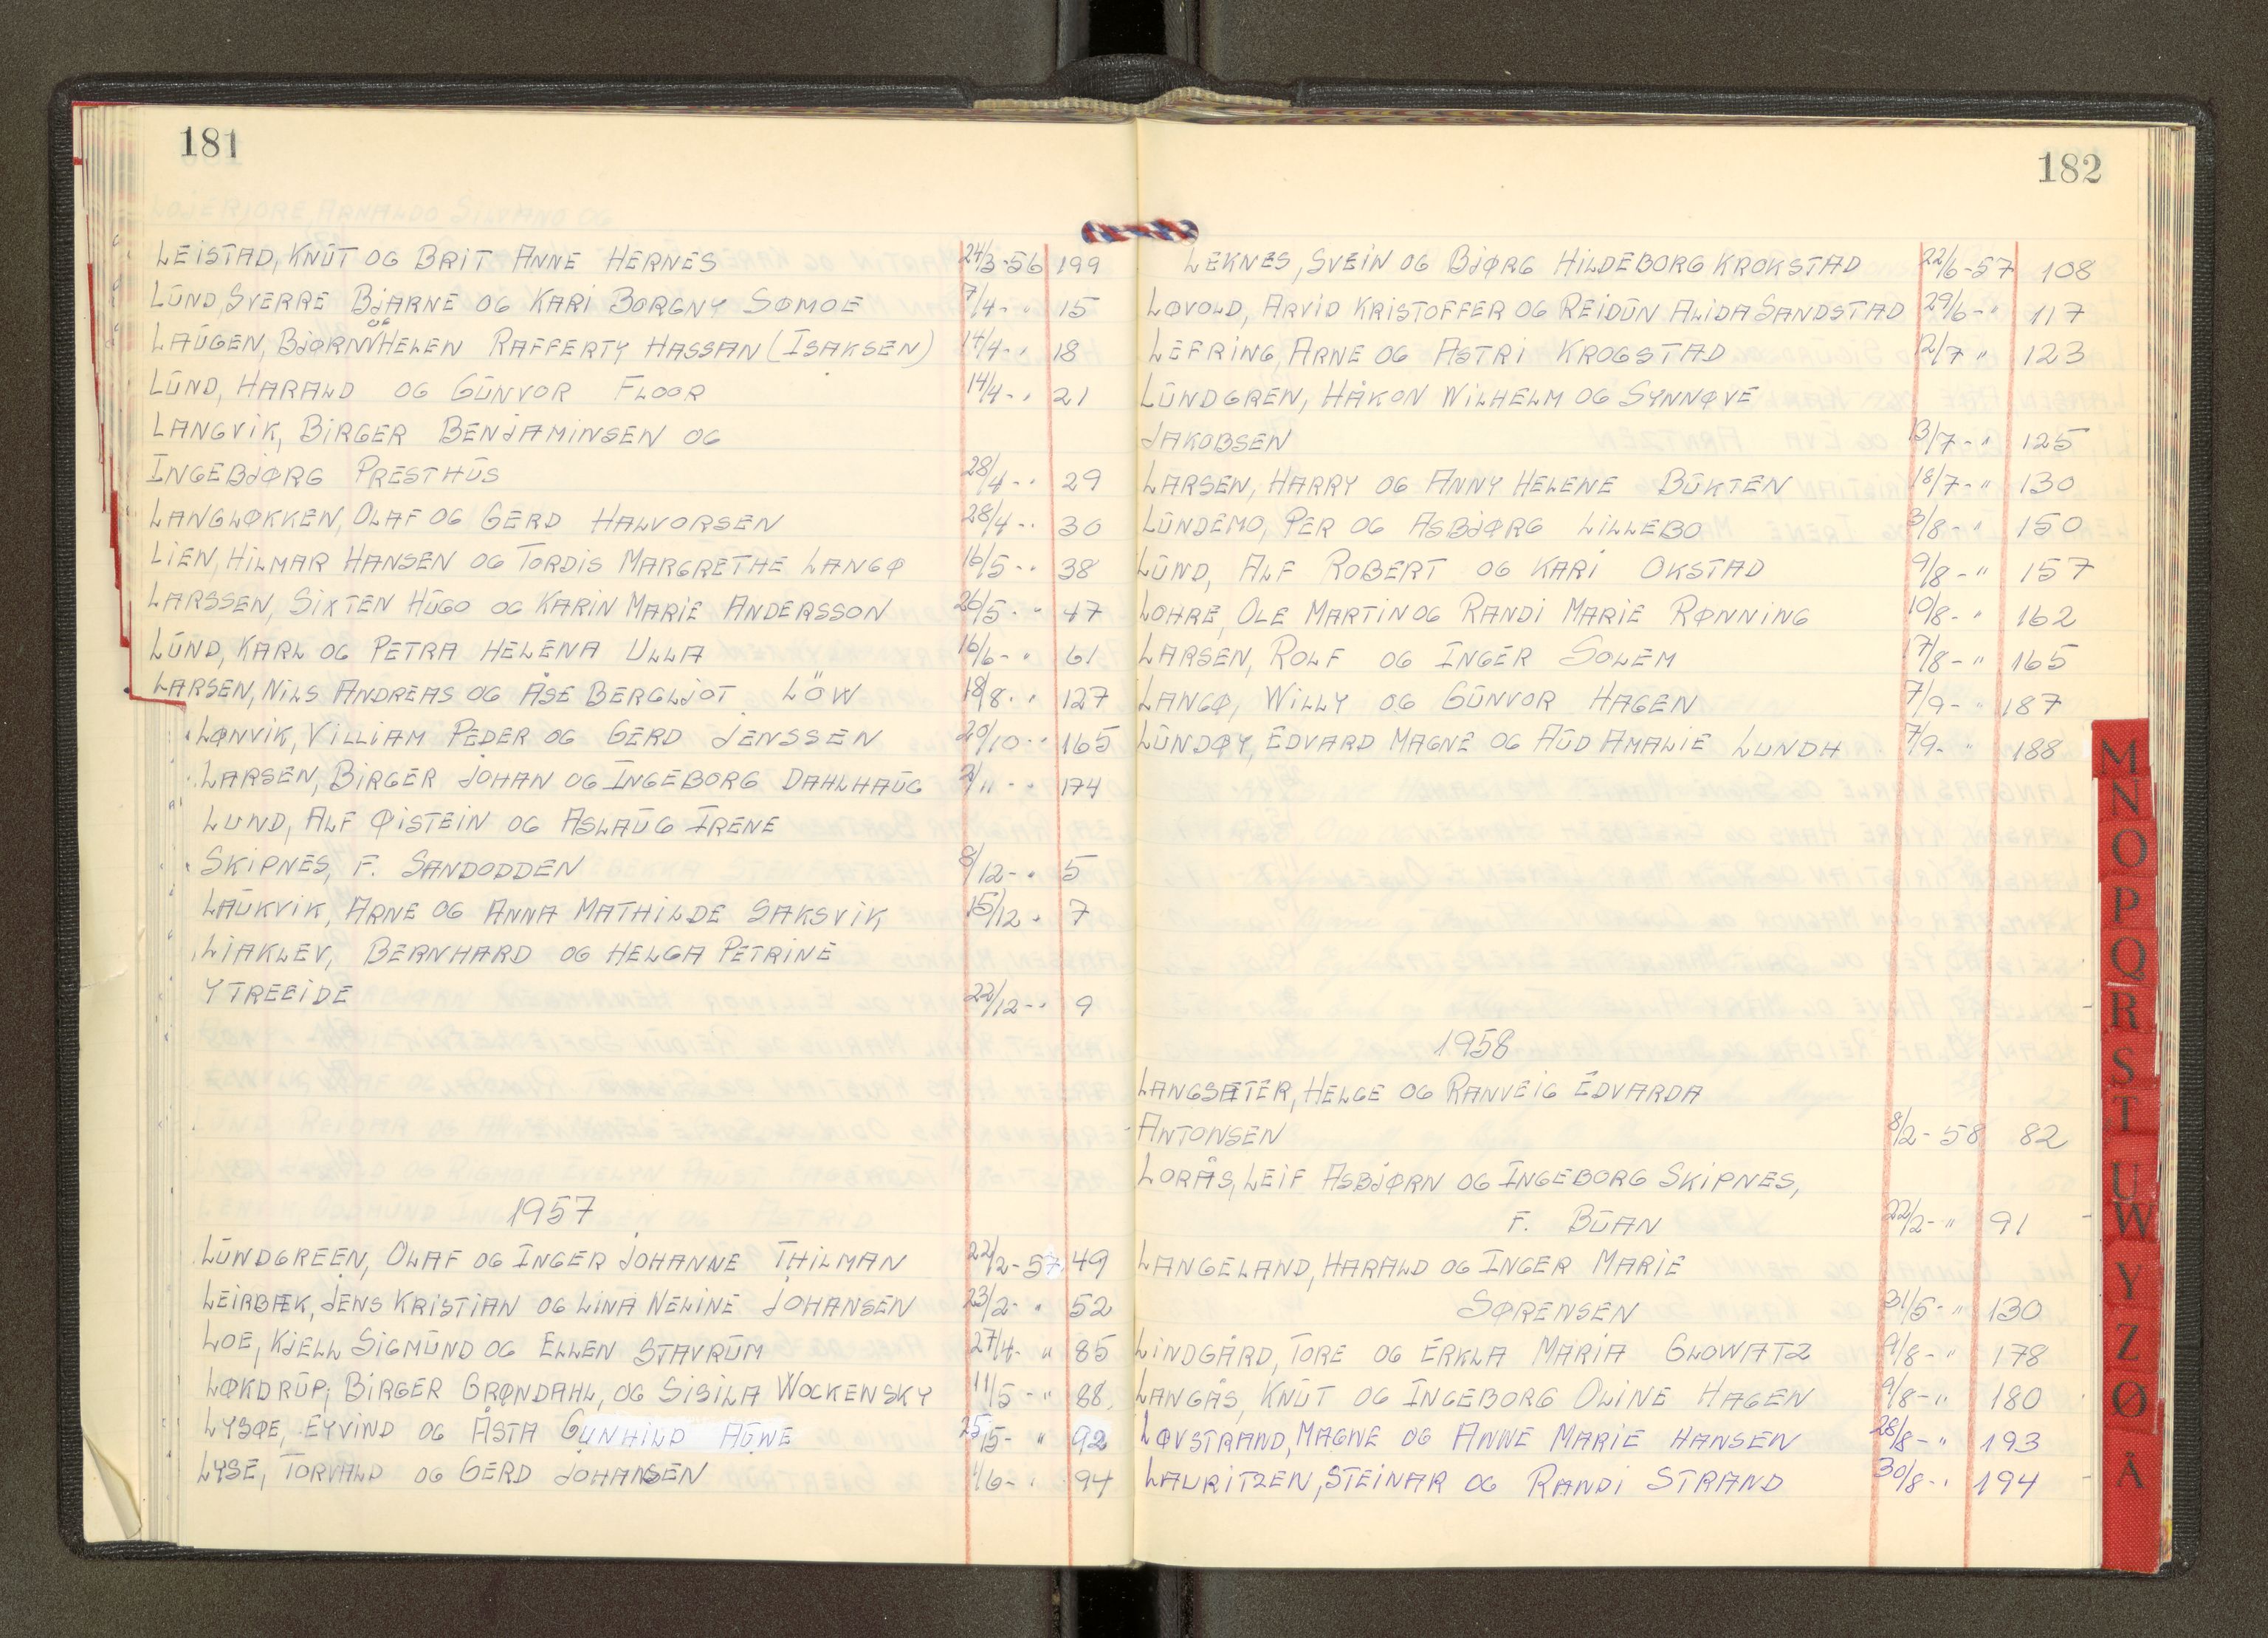 181
LEISTAD, KNŪT OG BRIT ANNE HERNES 24/3-56 199
LŪND, SVERRE BJARNE OG KARI BORGNY SØMOE 7/4- " 15
LAŪGEN, BJØRN OG HELEN RAFFERTY HASSAN (ISAKSEN) 14/4- " 18
LŪND, HARALD OG GŪNVOR FLOOR 14/4- " 21
LANGVIK, BIRGER BENJAMINSEN OG
INGEBJØRG PRESTHŪS 28/4- " 29
LANGLØKKEN, OLAF OG GERD HALVORSEN 28/4- " 30
LIEN, HILMAR HANSEN OG TORDIS MARGRETHE LANGØ 16/5- " 38
LARSSEN, SIXTEN HŪGO OG KARIN MARIE ANDERSSON 26/5- " 47
LŪND, KARL OG PETRA HELENA ULLA 16/6- " 61
LARSEN, NILS ANDREAS OG ÅSE BERGLJOT LÖW 18/8- " 127
LØNVIK, VILLIAM PEDER OG GERD JENSSEN 20/10- " 165
LARSEN, BIRGER JOHAN OG INGEBORG DAHLHAŪG 2/11- " 174
LUND, ALF ØISTEIN OG ASLAŪG IRENE
SKIPNES, F. SANDODDEN 8/12- " 5
LAŪKVIK, ARNE OG ANNA MATHILDE SAKSVIK 15/12- " 7
LIAKLEV, BERNHARD OG HELGA PETRINE
YTREEIDE 22/12- " 9
1957
LŪNDGREEN, OLAF OG INGER JOHANNE THILMAN 22/2-57 49
LEIRBÆK, JENS KRISTIAN OG LINA NELINE JOHANSEN 23/2- " 52
LOE, KJELL SIGMŪND OG ELLEN STAVRŪM 27/4- " 85
LØKDRŪP, BIRGER GRØNDAHL, OG SIBILA WOCKENSKY 11/5- " 88
LYSØE, EYVIND OG ÅSTA GUNHILD AŪNE 25/5- " 92
LYSE, TORVALD OG GERD JOHANSEN 1/6- " 94
182
LEKNES, SVEIN OG BJØRG HILDEBORG KROKSTAD 22/6-57 108
LØVOLD, ARVID KRISTOFFER OG REIDŪN ALIDA SANDSTAD 29/6- " 117
LEFRING, ARNE OG ASTRI KROGSTAD 12/7 " 123
LŪNDGREN, HÅKON WILHELM OG SYNNØVE
JAKOBSEN 13/7- " 125
LARSEN, HARRY OG ANNY HELENE BŪKTEN 18/7- " 130
LŪNDEMO, PER OG ASBJØRG LILLEBO 3/8- " 150
LŪND, ALF ROBERT OG KARI OKSTAD 9/8- " 157
LOHRE, OLE MARTIN OG RANDI MARIE RØNNING 10/8- " 162
LARSEN, ROLF OG INGER SOLEM 17/8- " 165
LANGØ, WILLY OG GŪNVOR HAGEN 7/9- " 187
LŪNDØY, EDVARD MAGNE OG AŪD AMALIE LUNDH 7/9- " 188
1958
LANGSÆTER, HELGE OG RANVEIG EDVARDA
ANTONSEN 8/2-58 82
LORÅS, LEIF ASBJØRN OG INGEBORG SKIPNES,
F. BŪAN 22/2- " 91
LANGELAND, HARALD OG INGER MARIE
SØRENSEN 31/5- " 130
LINDGÅRD, TORE OG ERKLA MARIA GLOWATZ 9/8- " 178
LANGÅS, KNŪT OG INGEBORG OLINE HAGEN 9/8- " 180
LØVSTRAND, MAGNE OG ANNE MARIE HANSEN 28/8- " 193
LAURITZEN, STEINAR OG RANDI STRAND 30/8- " 194
M
N
O
P
Q
R
S
T
U
W
Y
Z
Ø
Å